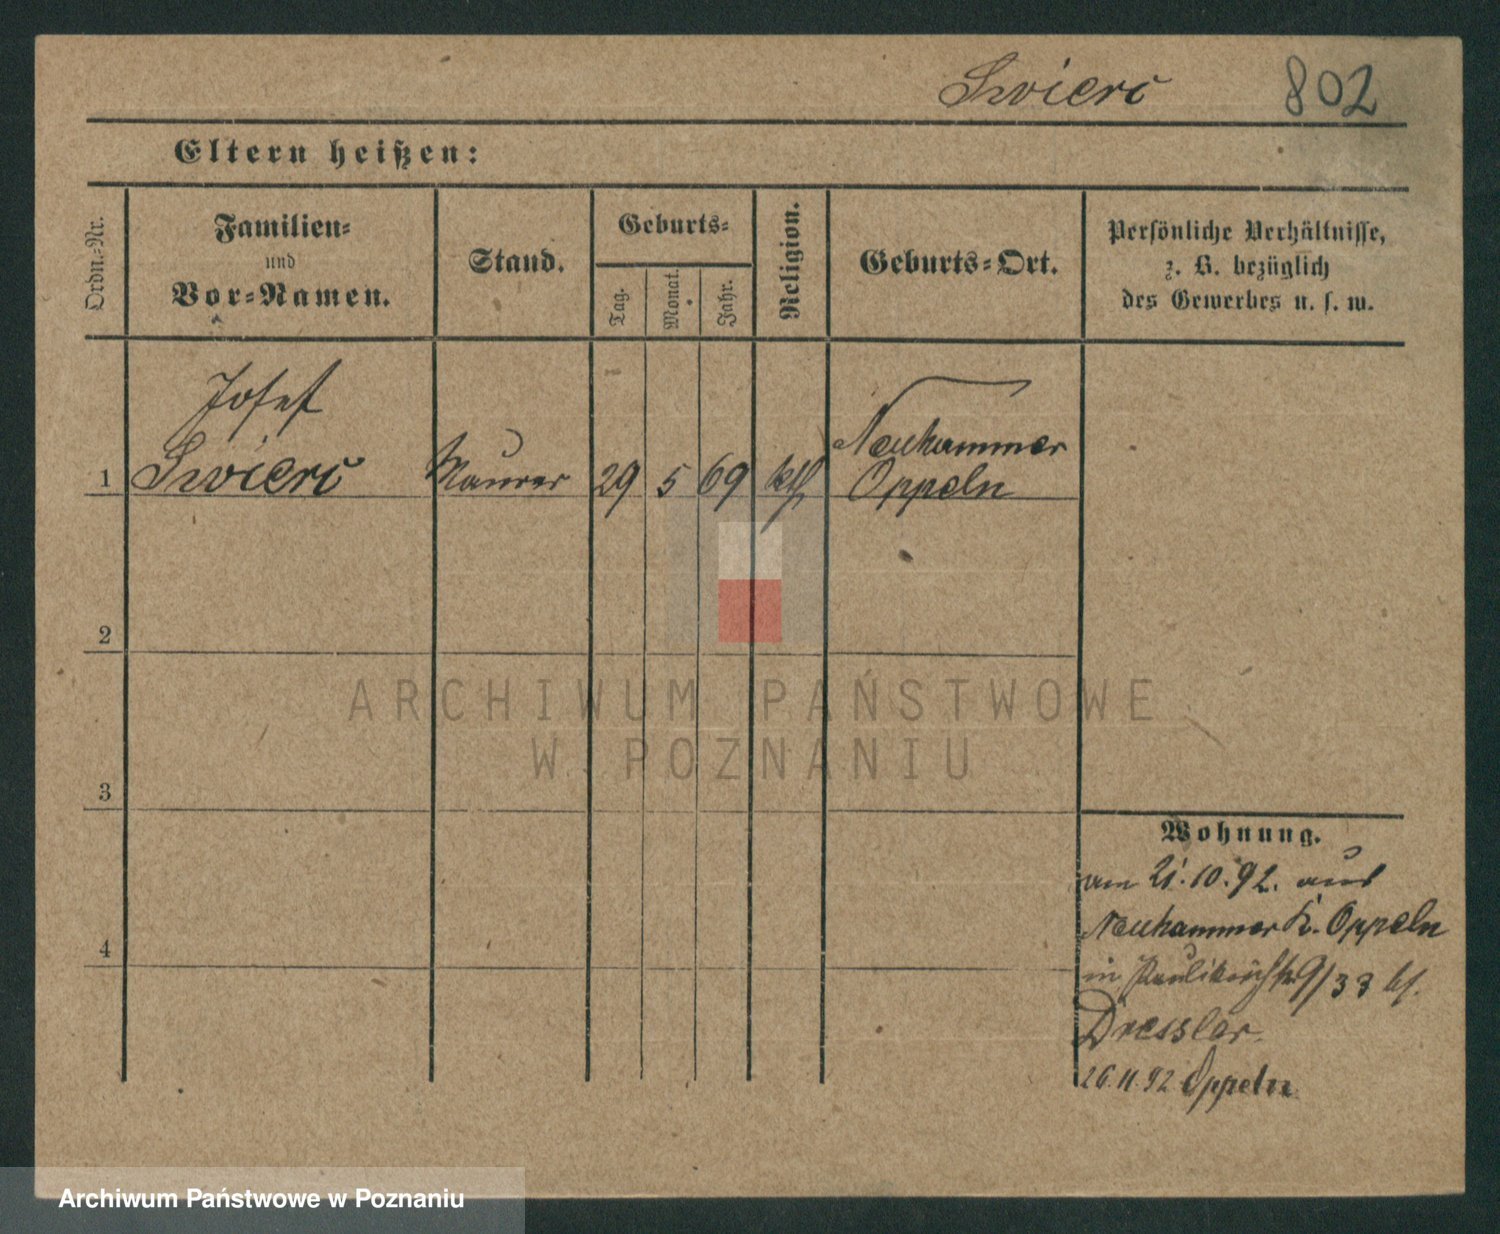 Swierc 802
Eltern heißen:
Ordn.-Nr.
Familien-
und
Vor-Namen.
Stand.
Geburts-
Tag.
Monat.
Jahr.
Religion.
Geburts-Ort.
Persönliche Verhältnisse,
z. B. bezüglich
des Gewerbes u. s. w.
Josef
1 Swierc Maurer 29 5 69 kth Neuhammer
Oppeln
2
3
4
Wohnung.
am 21.10.92. aus
Neuhammer K. Oppeln
in Paulikirchstr 9/33 bf.
Dressler.
26.11.92 Oppeln
ARCHIWUM PAŃSTWOWE
W POZNANIU
Archiwum Państwowe w Poznaniu